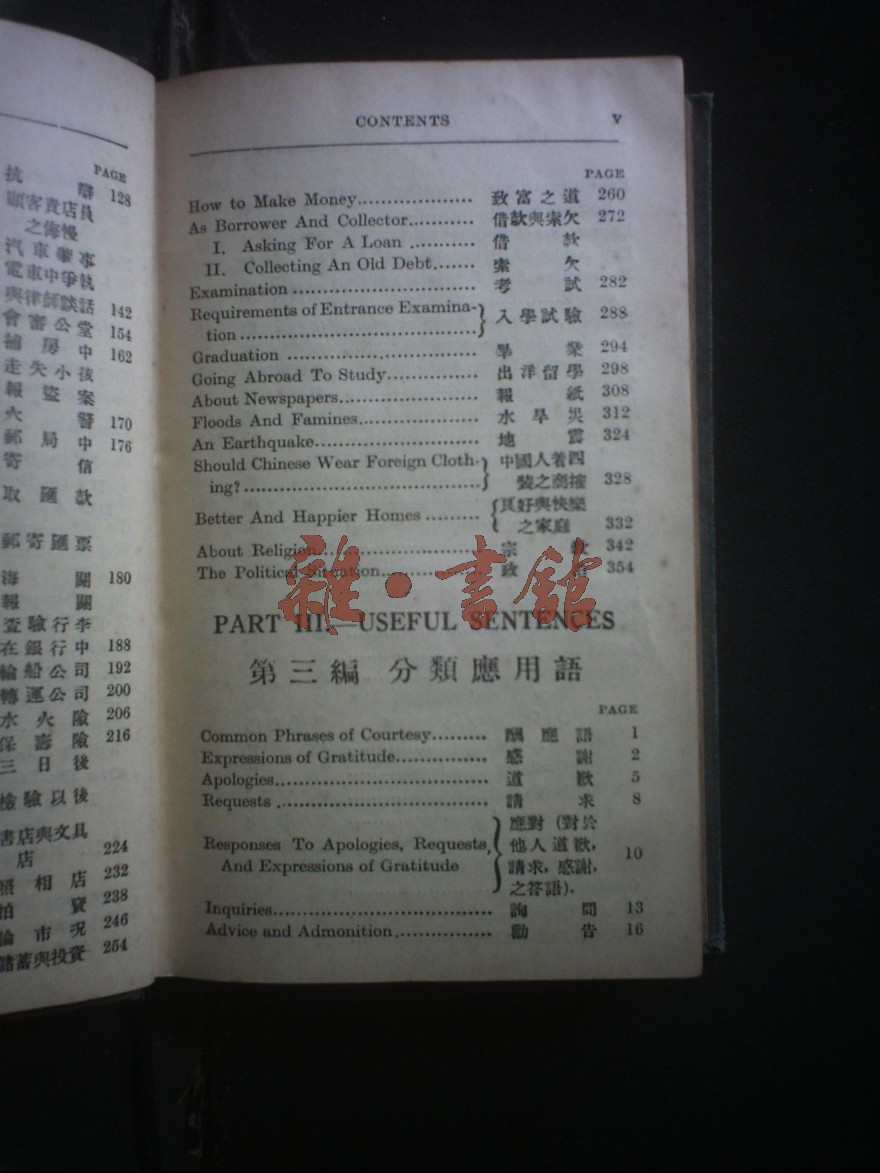 PAGE
抗 辯 128
顧客責店員
之傲慢
汽車肇事
電車中爭執
與律師談話 142
會審公堂 154
捕房中 162
走失小孩
報盜案
火警 170
郵局中 176
寄信
取匯款
郵寄匯票
海關 180
報關
查驗行李
在銀行中 188
輪船公司 192
轉運公司 200
水火險 206
保壽險 216
三日後
檢驗以後
書店與文具
店 224
照相店 232
拍賣 238
論市况 246
儲蓄與投資 254
CONTENTS v
PAGE
How to Make Money 致富之道 260
As Borrower And Collector 借款與索欠 272
I. Asking For A Loan 借款
II. Collecting An Old Debt 索欠
Examination 考試 282
Requirements of Entrance Examina-
tion 入學試驗 288
Graduation 畢業 294
Going Abroad To Study 出洋留學 298
About Newspapers 報紙 308
Floods And Famines 水旱災 312
An Earthquake 地震 324
Should Chinese Wear Foreign Cloth- 中國人着西
ing? 裝之商榷 328
Better And Happier Homes 良好與快樂
之家庭 332
About Religion 宗教 342
The Political Situation 政治 354
雜·書館
PART III.—USEFUL SENTENCES
第三編 分類應用語
PAGE
Common Phrases of Courtesy 酬應語 1
Expressions of Gratitude 感謝 2
Apologies 道歉 5
Requests 請求 8
Responses To Apologies, Requests,
And Expressions of Gratitude
應對（對於
他人道歉，
請求，感謝，
之答語）． 10
Inquiries 詢問 13
Advice and Admonition 勸告 16